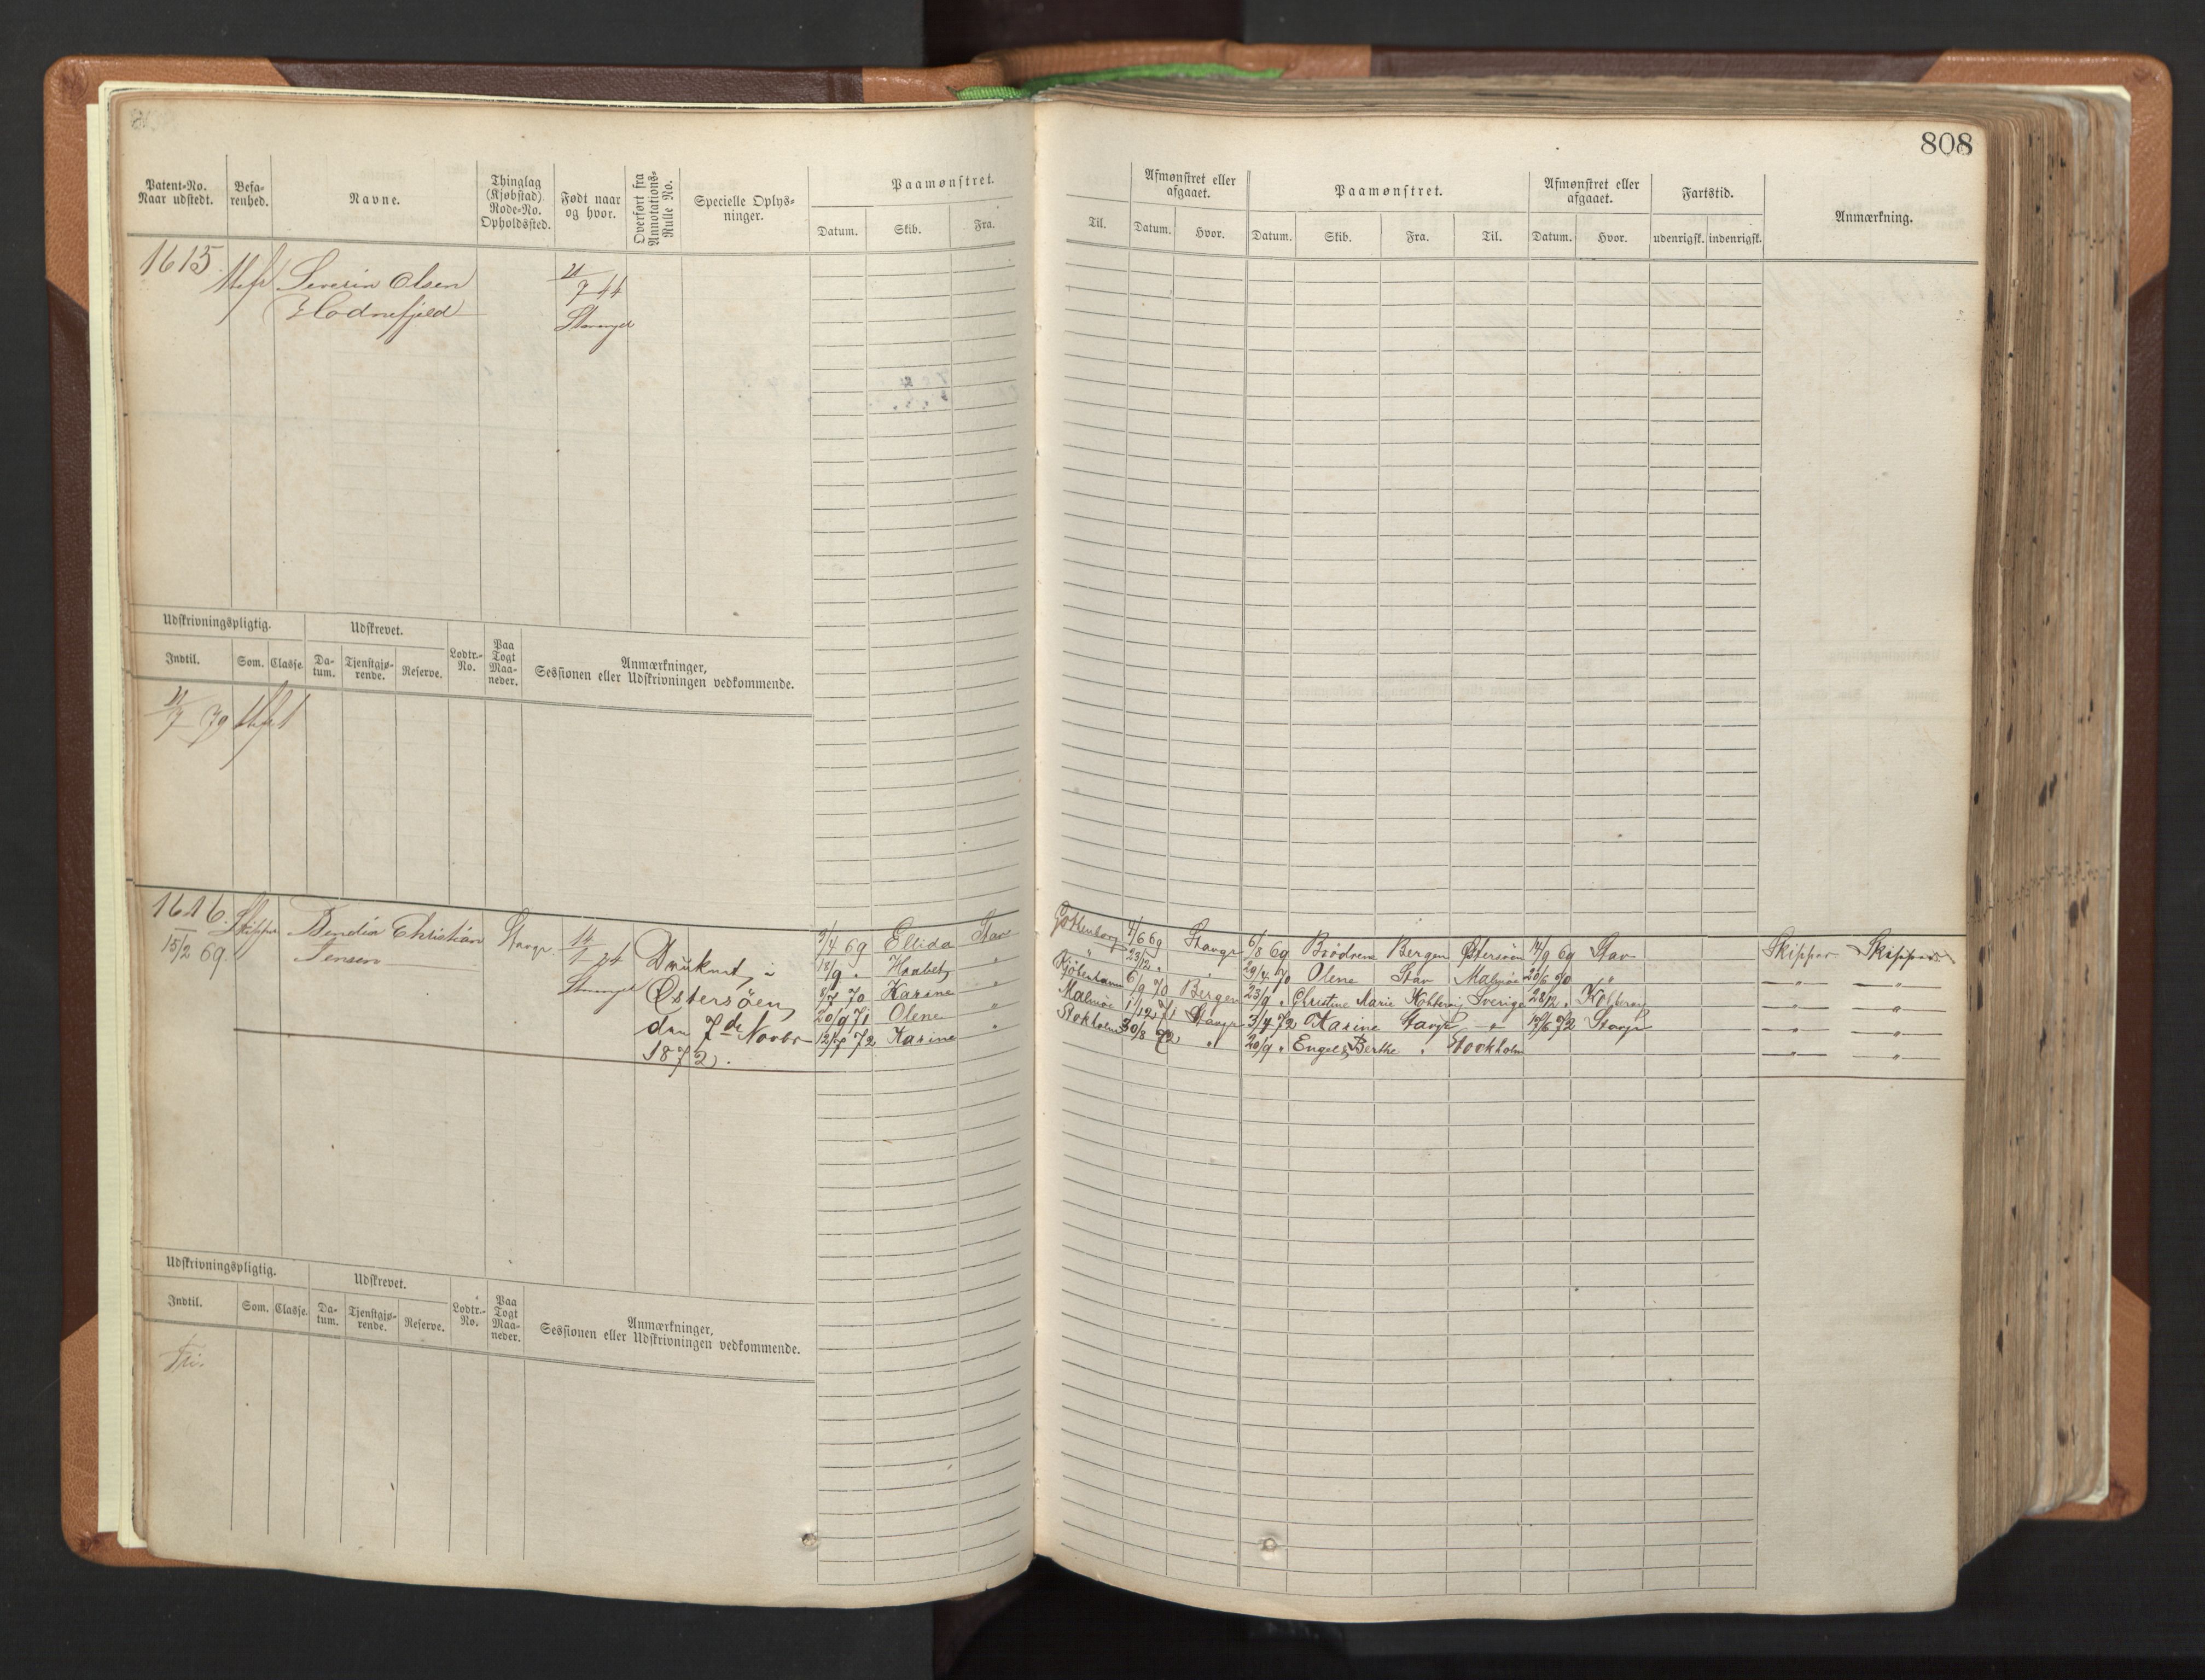 808
Patent-No.
Naar udstedt.
Befa-
renhed.
Navne.
Thinglag
(Kjøbstad)
Rode-No.
Opholdssted.
Født naar
og hvor.
Overført fra
Annotations-
Rulle No.
Specielle Oplys-
ninger.
Paamønstret.
Datum. Skib. Fra.
Til.
Afmønstret eller
afgaaet.
Datum. Hvor.
Paamønstret.
Datum. Skib. Fra. Til.
Afmønstret eller
afgaaet.
Datum. Hvor.
Fartstid.
udenrigsk. indenrigsk.
Anmærkning.
1615
Severin Olsen
Hodnefjeld
21/7 44
Udskrivningspligtig.
Indtil. Som. Classe.
Udskrevet.
Da-
tum.
Tjenstgjø-
rende.
Reserve.
Lodtr.-
No.
Paa
Togt
Maa-
neder.
Anmærkninger,
Sessionen eller Udskrivningen vedkommende.
21/7 79
1616.
15/2 69.
Skipper
Christian
Jensen
Stavgr.
Druknet i
Østersöen
den 7de Novbr
1872.
9/4 69 Ellida Stav Gottenborg 4/6 69 Stavgr 6/8 69 Brödrene Bergen Østersöen 14/9 69 Stav Skipper Skipper
18/9 " Haabet " " 23/12 " " 29/4 70 Olene Stav Malmöe 20/6 70 " — " — — " —
8/7 70 Karine " Kjöbenhavn 6/9 70 Bergen 23/9 " Christine Marie Sverige 28/12 " — " — — " —
20/9 71 Olene " Malmöe 1/12 71 Stavgr 3/4 72 Karine Stavgr — " 17/6 72 Stavgr — " — — " —
72 Karine " Stokholm 30/8 72 " 20/9 " Engel Berthe " Stockholm — " — — " —
Udskrivningspligtig.
Indtil. Som. Classe.
Udskrevet.
Da-
tum.
Tjenstgjø-
rende.
Reserve.
Lodtr.-
No.
Paa
Togt
Maa-
neder.
Anmærkninger,
Sessionen eller Udskrivningen vedkommende.
Fri.